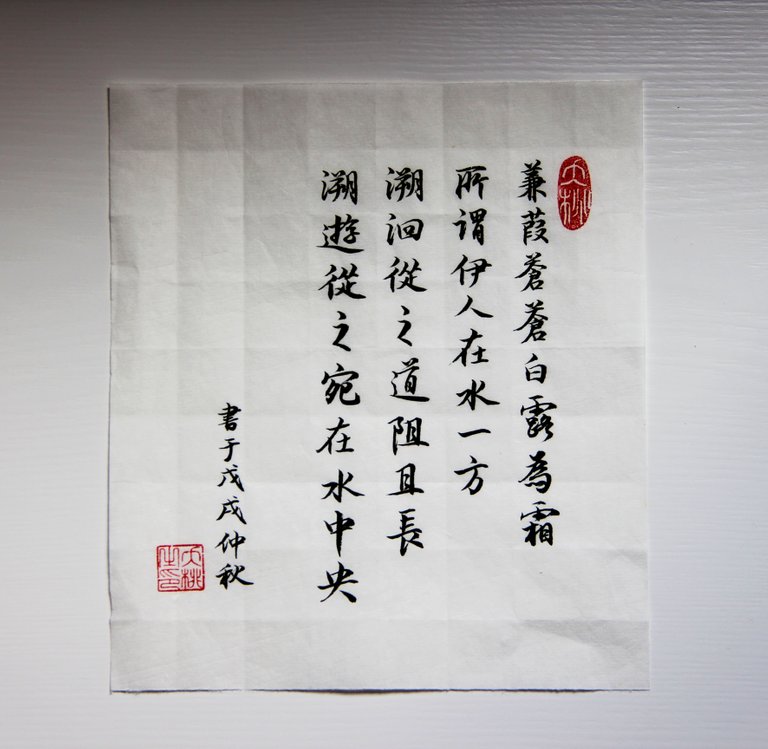 蒹葭蒼蒼白露為霜
所謂伊人在水一方
溯洄從之道阻且長
溯遊從之宛在水中央
書于戊戌仲秋